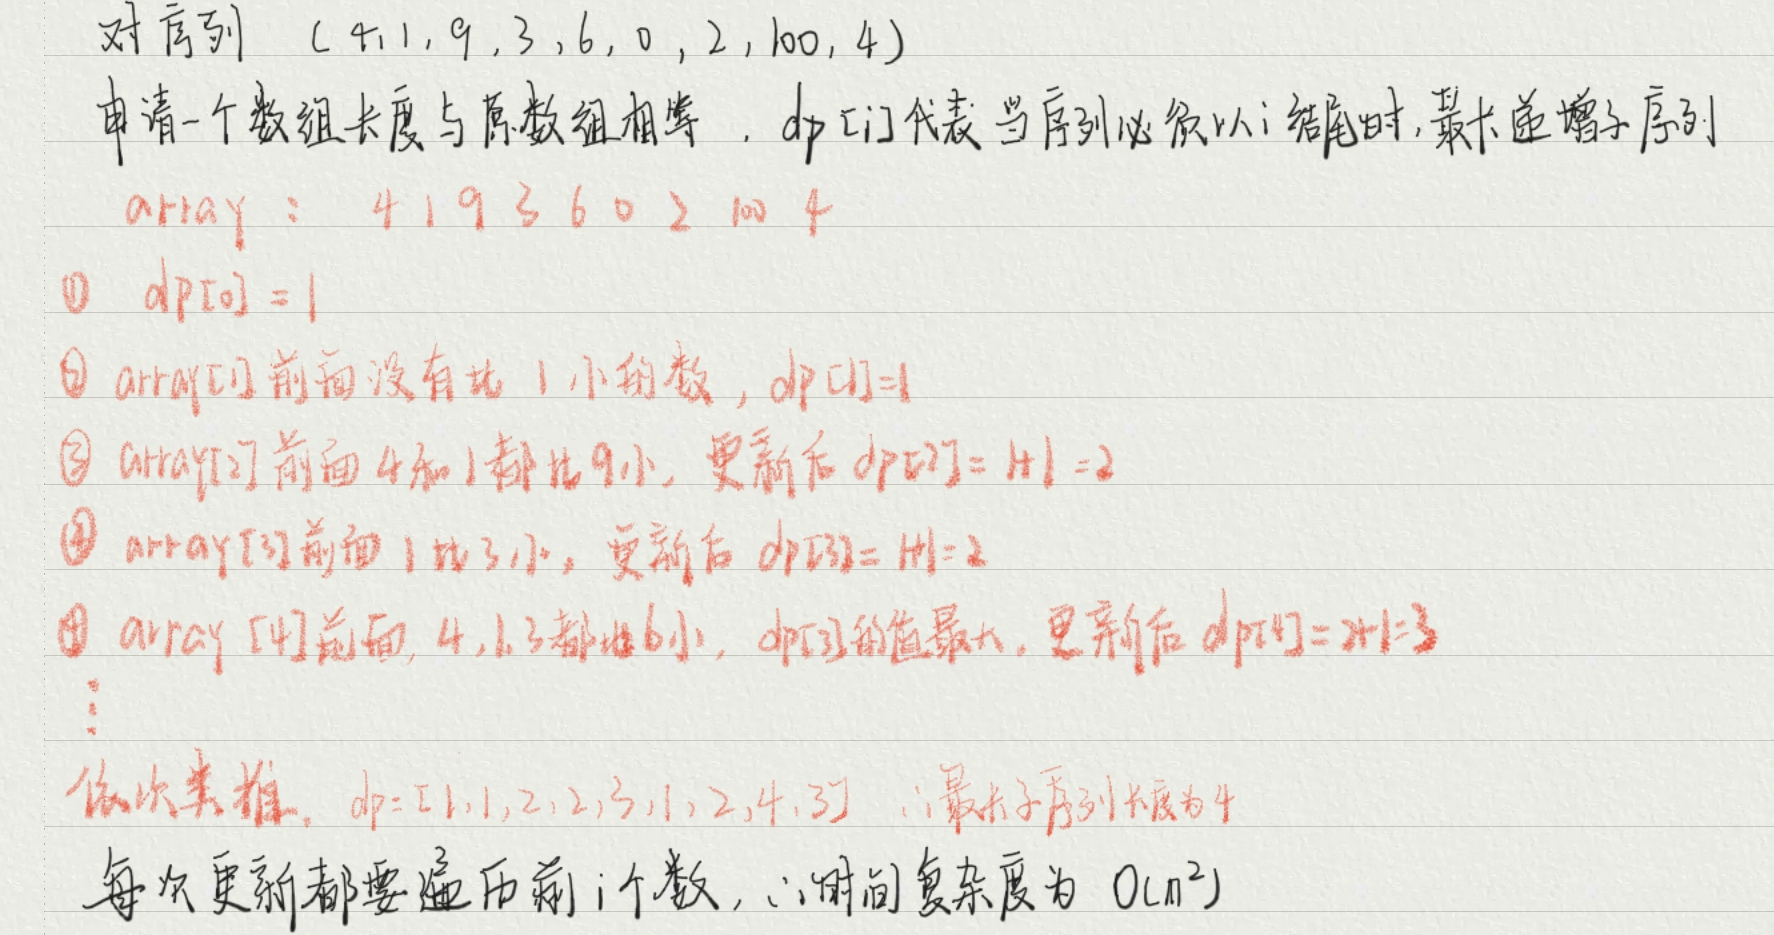 对序列 (4,1,9,3,6,0,2,100,4)
申请一个数组长度与原数组相等，dp[i]代表当序列必须以i结尾时,最长递增子序列
array: 4 1 9 3 6 0 2 100 4
① dp[0]=1
② array[1]前面没有比1小的数，dp[1]=1
③ array[2]前面4和1都比9小，更新后dp[2]=1+1=2
④ array[3]前面1比3小，更新后dp[3]=1+1=2
④ array[4]前面，4,1,3都比6小，dp[3]的值最大，更新后dp[4]=2+1=3
⋮
依次类推，dp=[1,1,2,2,3,1,2,4,3] ∴最长子序列长度为4
每次更新都要遍历前i个数，∴时间复杂度为O(n²)